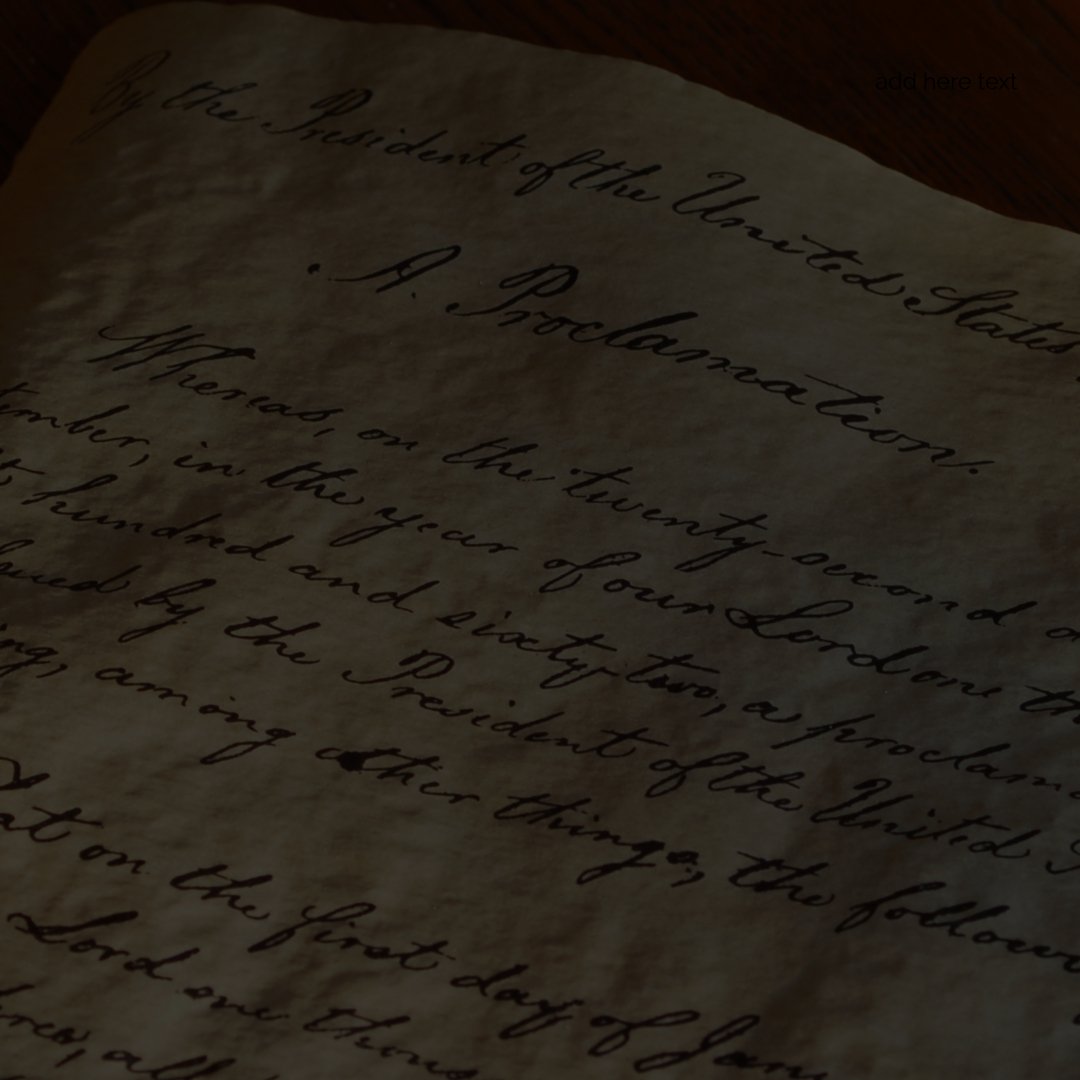 add here text
By the President of the United States
A. Proclamation.
Whereas, on the twenty-second
tember, in the year of our Lord one
hundred and sixty two, a proclam
sued by the President of the United
ing, among other things, the follow
at on the first day of Jan
Lord one thous
hree, all